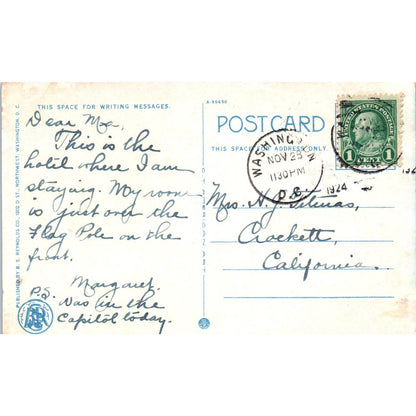 THIS SPACE FOR WRITING MESSAGES.
Dear Ma,
This is the
hotel where I am
staying. My room
is just over the
Flag Pole on the
front.
Margaret.
P.S. Was in the
Capitol today.
PUBLISHED BY B. S. REYNOLDS CO., NORTHWEST, WASHINGTON, D. C.
A-95650
POST CARD
THIS SPACE FOR ADDRESS ONLY.
WASHINGTON
NOV 23
11 30 PM
D.C.
1924
1 CENT 1
Mrs. N. J.
Crockett,
California.